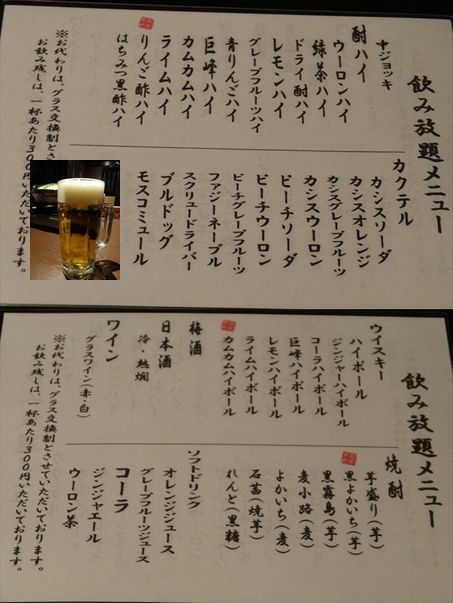 飲み放題メニュー
中ジョッキ
酎ハイ
ウーロンハイ
緑茶ハイ
ドライ酎ハイ
レモンハイ
グレープフルーツハイ
青りんごハイ
巨峰ハイ
カムカムハイ
ライムハイ
りんご酢ハイ
はちみつ黒酢ハイ
カクテル
カシスソーダ
カシスオレンジ
カシスグレープフルーツ
カシスウーロン
ピーチソーダ
ピーチウーロン
ピーチグレープフルーツ
ファジーネーブル
スクリュードライバー
ブルドッグ
モスコミュール
※お代わりは、グラス交換制とさ
お飲み残しは、一杯あたり300円いただいております。
飲み放題メニュー
ウイスキー
ハイボール
ジンジャーハイボール
コーラハイボール
巨峰ハイボール
レモンハイボール
ライムハイボール
カムカムハイボール
梅酒
日本酒
冷・熱燗
ワイン
グラスワイン(赤・白)
焼酎
芋盛り(芋)
黒よかいち(芋)
黒霧島(芋)
麦小路(麦)
よかいち(麦)
石蒸焼芋(芋)
れんと(黒糖)
ソフトドリンク
オレンジジュース
グレープフルーツジュース
コーラ
ジンジャエール
ウーロン茶
※お代わりは、グラス交換制とさせていただいております。
お飲み残しは、一杯あたり300円いただいております。